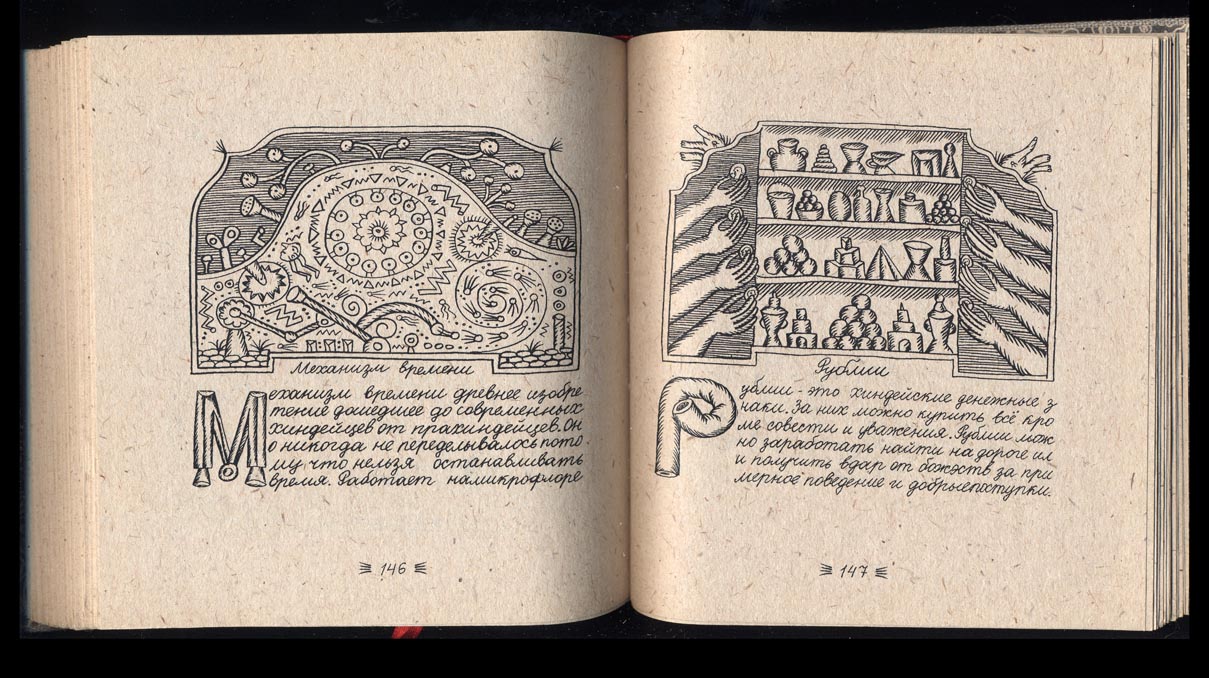 Механизм времени
Механизм времени древнее изобре
тение дошедшее до современных
хиндейцев от прахиндейцев. Он
о никогда не переделывалось пото
му, что нельзя останавливать
время. Работает намикрофлоре
146
Рублии
Рублии - это хиндейские денежные з
наки. За них можно купить всё кро
ме совести и уважения. Рублии мож
но заработать найти на дороге ил
и получить вдар от божеств за при
мерное поведение и добрыепоступки.
147